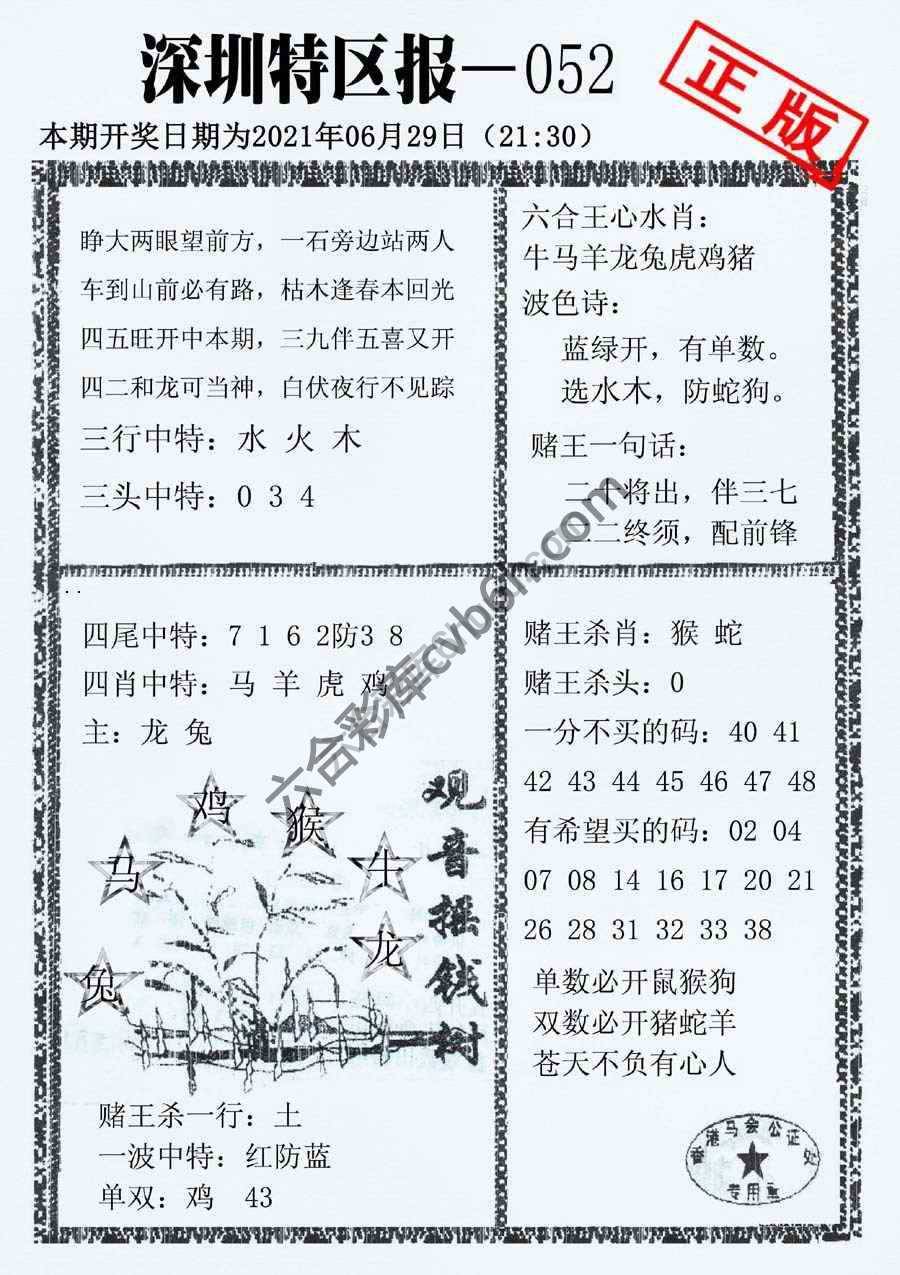 深圳特区报—052
正版
本期开奖日期为2021年06月29日（21:30）
睁大两眼望前方，一石旁边站两人
车到山前必有路，枯木逢春本回光
四五旺开中本期，三九伴五喜又开
四二和龙可当神，白伏夜行不见踪
三行中特：水 火 木
三头中特：0 3 4
六合王心水肖：
牛马羊龙兔虎鸡猪
波色诗：
蓝绿开，有单数。
选水木，防蛇狗。
赌王一句话：
二十将出，伴三七
二二终须，配前锋
六合彩库cvb6h.com
四尾中特：7 1 6 2防3 8
四肖中特：马 羊 虎 鸡
主：龙 兔
鸡
猴
马
牛
龙
兔
观音摇钱树
赌王杀一行：土
一波中特：红防蓝
单双：鸡 43
赌王杀肖：猴 蛇
赌王杀头：0
一分不买的码：40 41
42 43 44 45 46 47 48
有希望买的码：02 04
07 08 14 16 17 20 21
26 28 31 32 33 38
单数必开鼠猴狗
双数必开猪蛇羊
苍天不负有心人
香港马会公证处
专用章